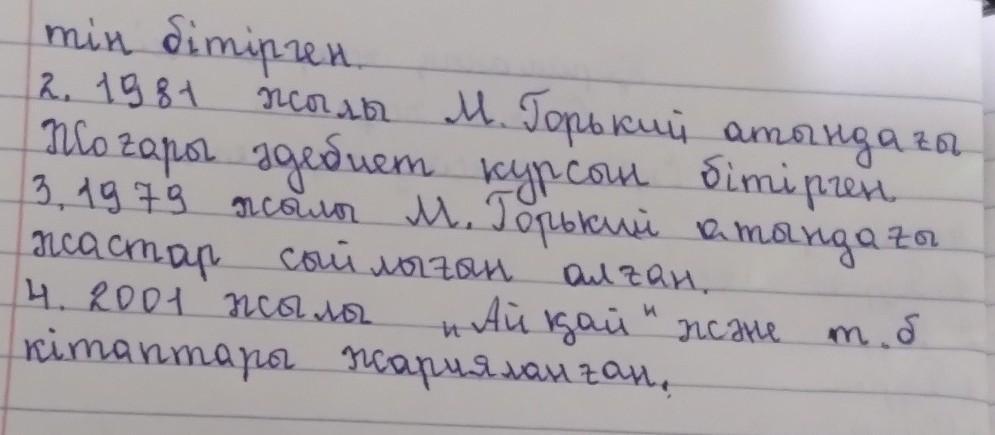 тін бітірген.
2. 1981 жылы М. Горький атындағы
Жоғары әдебиет курсын бітірген
3. 1979 жылы М. Горький атындағы
жастар сыйлығын алған.
4. 2001 жылы „Айқай" және т.б
кітаптары жарияланған.